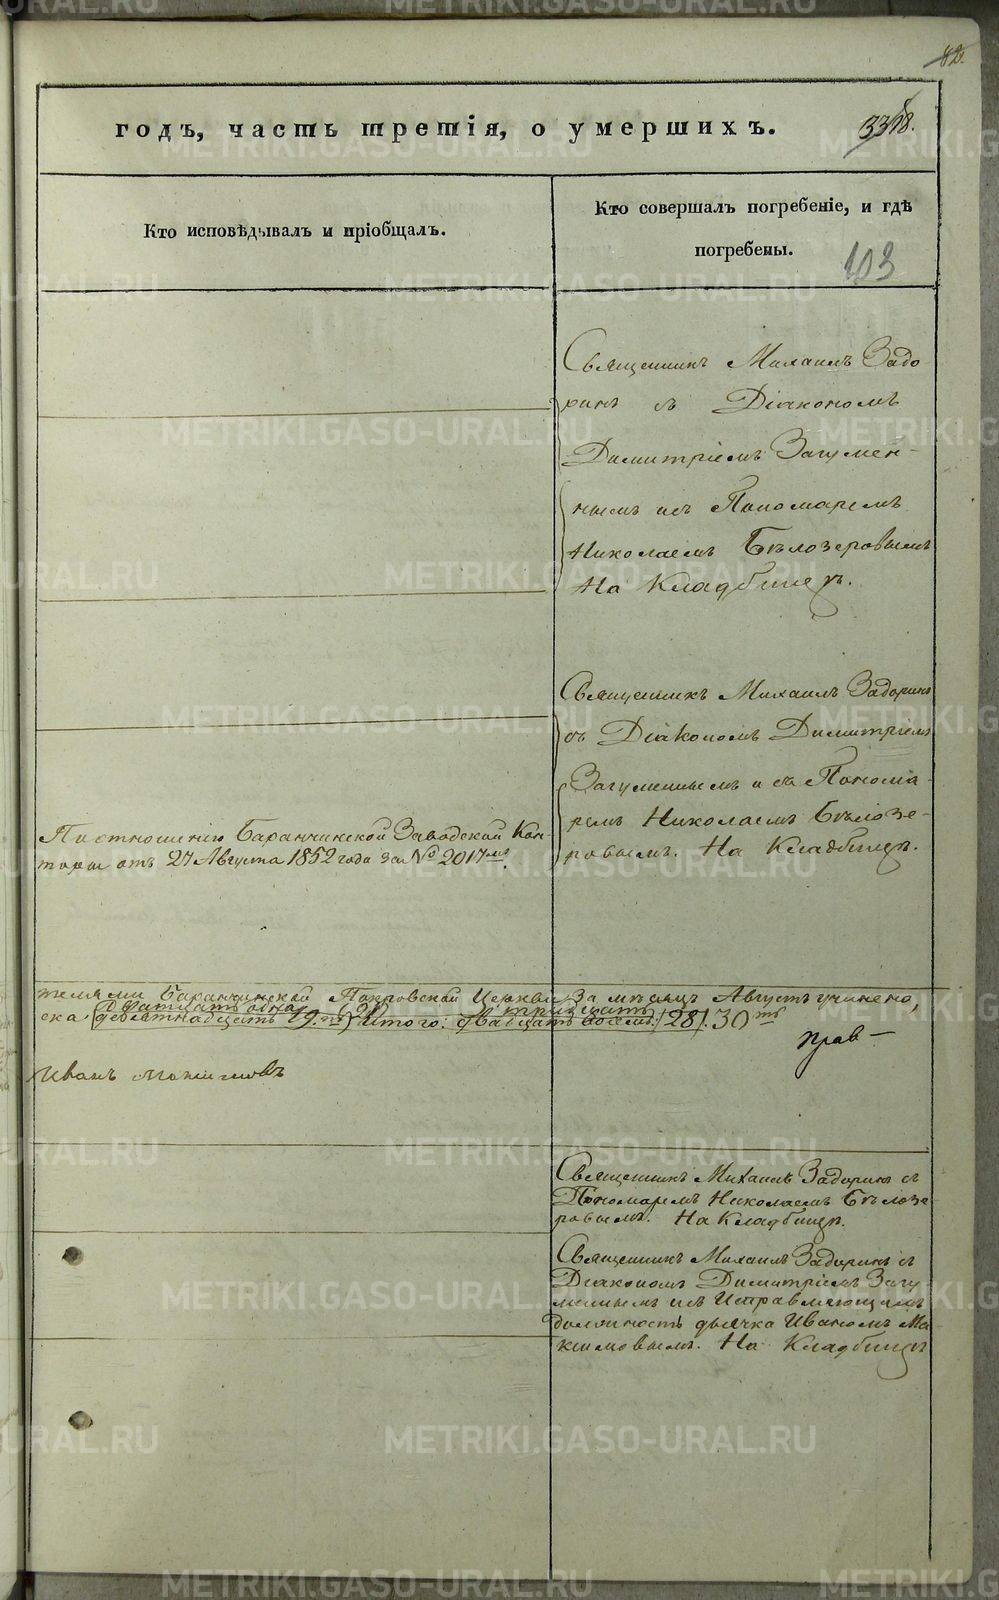 82.
годъ, часть третія, о умершихъ.
Кто исповѣдывалъ и пріобщалъ.
Кто совершалъ погребеніе, и гдѣ
погребены.
103
Священникъ Михаилъ Задо
ринъ съ Діакономъ
Димитріемъ Загумен-
нымъ и съ Пономаремъ
Николаемъ Бѣлозеровымъ
На Кладбищѣ.
Священникъ Михаилъ Задоринъ
съ Діакономъ Димитріемъ
Загуменнымъ и съ Понома-
ремъ Николаемъ Бѣлозе-
ровымъ. На Кладбищѣ.
По отношенію Баранчинской Заводской Кон-
торы отъ 27 Августа 1852 года за № 2017мъ.
телями Баранчинской Покровской Церкви За мѣсяцъ Августъ учинено,
двадцать одна тридцать
ска девятнадцать 19. Итого: двадцать восемь /28/. 30ть
Прав-
Иванъ Максимовъ
Священникъ Михаилъ Задоринъ съ
Пономаремъ Николаемъ Бѣлозе-
ровымъ. На Кладбищѣ.
Священникъ Михаилъ Задоринъ съ
Діакономъ Димитріемъ Загу-
меннымъ и съ Исправляющимъ
должность дьячка Иваномъ Ма-
ксимовымъ. На Кладбищѣ
METRIKI.GASO-URAL.RU